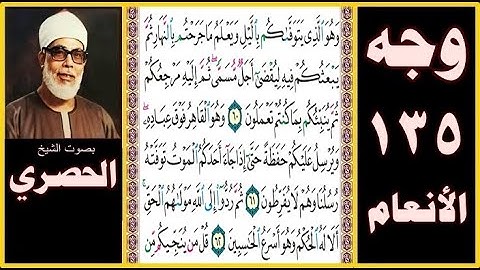 وجه
١٣٥
الأنعام
وَهُوَ ٱلَّذِى يَتَوَفَّىٰكُم بِٱلَّيْلِ وَيَعْلَمُ مَا جَرَحْتُم بِٱلنَّهَارِ ثُمَّ
يَبْعَثُكُمْ فِيهِ لِيُقْضَىٰٓ أَجَلٌ مُّسَمًّى ۖ ثُمَّ إِلَيْهِ مَرْجِعُكُمْ
ثُمَّ يُنَبِّئُكُم بِمَا كُنتُمْ تَعْمَلُونَ ٦٠ وَهُوَ ٱلْقَاهِرُ فَوْقَ عِبَادِهِۦ ۖ
وَيُرْسِلُ عَلَيْكُمْ حَفَظَةً حَتَّىٰٓ إِذَا جَآءَ أَحَدَكُمُ ٱلْمَوْتُ تَوَفَّتْهُ
رُسُلُنَا وَهُمْ لَا يُفَرِّطُونَ ٦١ ثُمَّ رُدُّوٓا۟ إِلَى ٱللَّهِ مَوْلَىٰهُمُ ٱلْحَقِّ ۚ
أَلَا لَهُ ٱلْحُكْمُ وَهُوَ أَسْرَعُ ٱلْحَٰسِبِينَ ٦٢ قُلْ مَن يُنَجِّيكُم مِّن
بصوت الشيخ
الحصري